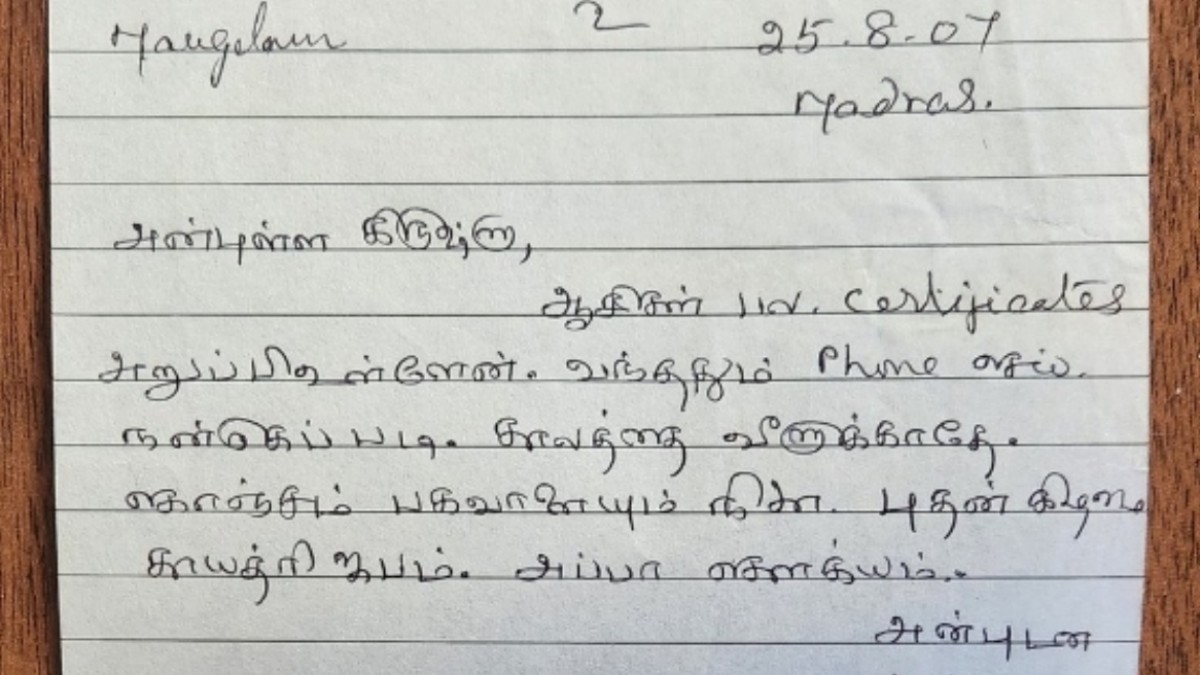 Mangalam 2 25.8.07
Madras.
அன்புள்ள
ஆசிகள் பல. Certificates
அனுப்பியுள்ளேன். வந்ததும் Phone செய்.
நன்கு படி. காலத்தை வீணாக்காதே.
கொஞ்சம் பகவானையும் நினை. புதன் கிழமை
காயத்ரி ஜபம். அப்பா சௌக்யம்.
அன்புடன்